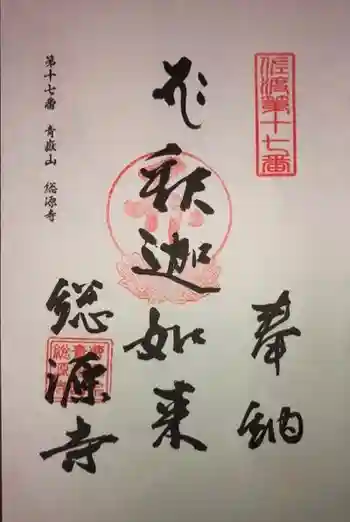 佐渡第十七番
奉納
釈迦如来
総源寺
第十七番 青嶽山 総源寺